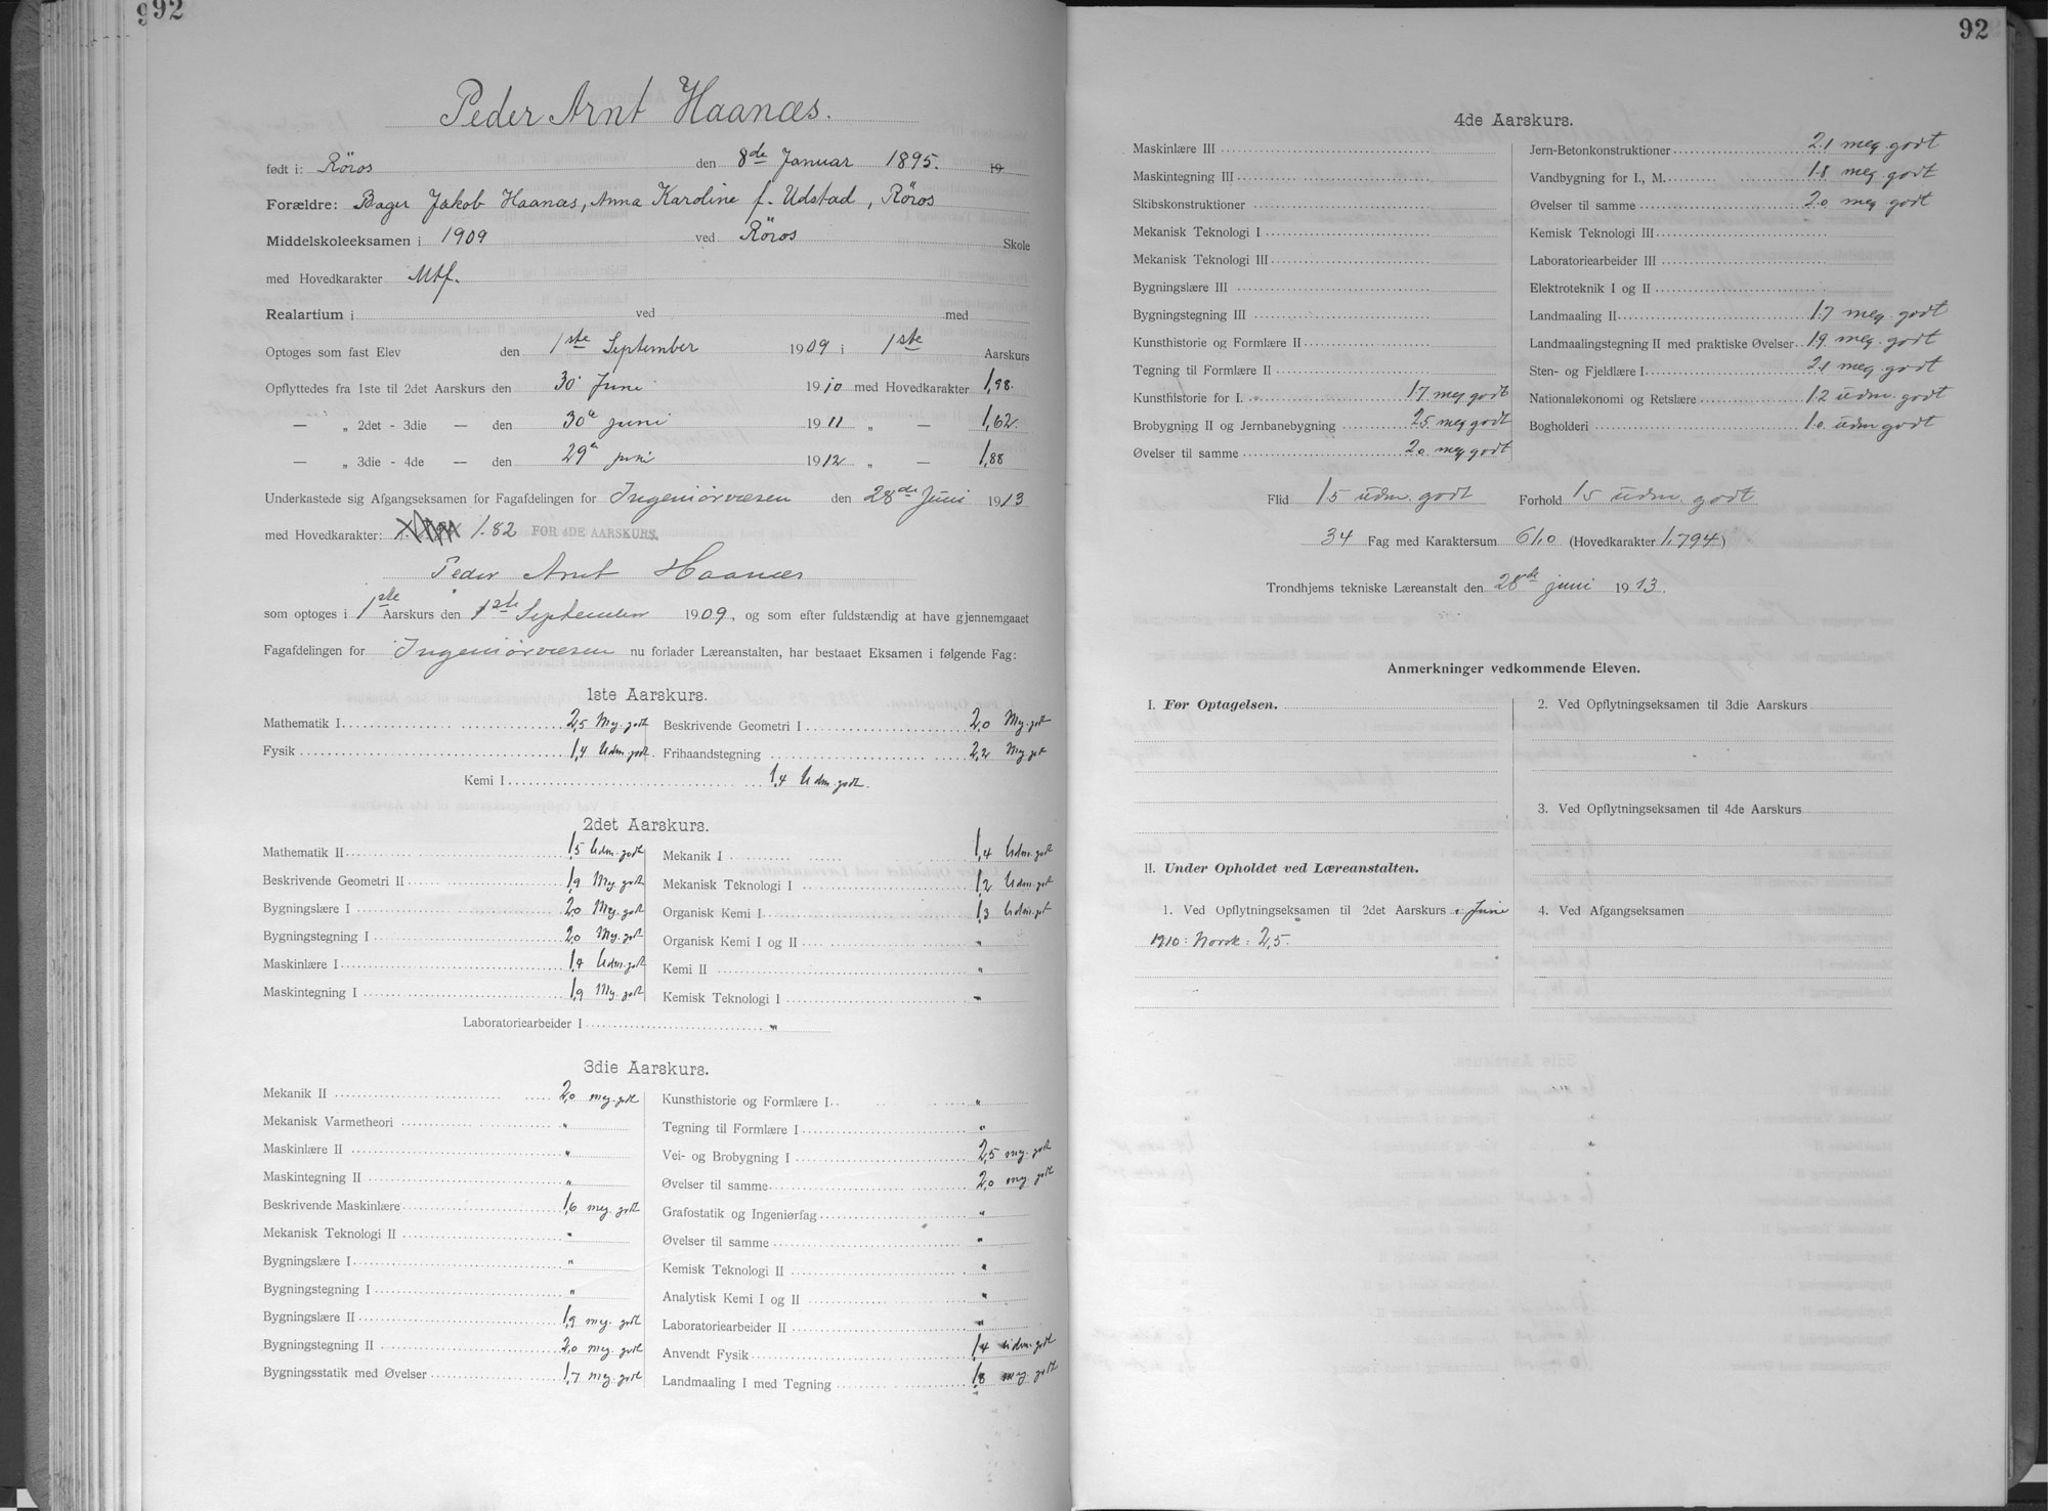 92
92
Peder Arnt Haanæs.
født i: Röros den 8de Januar 1895. 19
Forældre: Bager Jakob Haanæs, Anna Karoline f. Udstad, Röros
Middelskoleeksamen i 1909 ved Röros Skole
med Hovedkarakter Mtf.
Realartium i ved med
Optoges som fast Elev den 1ste September 1909 i 1ste Aarskurs
Opflyttedes fra 1ste til 2det Aarskurs den 30 Juni 1910 med Hovedkarakter 1,98.
— „ 2det - 3die — den 30te juni 1911 „ — 1,62.
— „ 3die - 4de — den 29de juni 1912 „ — 1,88
Underkastede sig Afgangseksamen for Fagafdelingen for Ingeniörvæsen den 28de Juni 1913
med Hovedkarakter: 1.82 FOR 4DE AARSKURS.
Peder Arnt Haanæs
som optoges i 1ste Aarskurs den 1ste September 1909, og som efter fuldstændig at have gjennemgaaet
Fagafdelingen for Ingeniörvæsen nu forlader Læreanstalten, har bestaaet Eksamen i følgende Fag:
1ste Aarskurs.
Mathematik I 2,5 Meg. godt
Fysik 1,4 Udm. godt
Beskrivende Geometri I 2,0 Meg. godt
Frihaandstegning 2,2 Meg. gt
Kemi I 1,4 Udm. godt.
2det Aarskurs.
Mathematik II 1,5 Udm. godt
Beskrivende Geometri II 1,9 Meg. godt
Bygningslære I 2,0 Meg. godt
Bygningstegning I 2,0 Meg. godt
Maskinlære I 1,4 Udm. godt
Maskintegning I 1,9 Meg. godt
Mekanik I 1,4 Udm. godt
Mekanisk Teknologi I 1,2 Udm. gt
Organisk Kemi I 1,3 Udm. gt
Organisk Kemi I og II "
Kemi II "
Kemisk Teknologi I "
Laboratoriearbeider I "
3die Aarskurs.
Mekanik II 2,0 meg. godt
Mekanisk Varmetheori "
Maskinlære II "
Maskintegning II "
Beskrivende Maskinlære 1,6 meg. godt
Mekanisk Teknologi II "
Bygningslære I "
Bygningstegning I "
Bygningslære II 1,9 meg. godt
Bygningstegning II 2,0 meg. godt
Bygningsstatik med Øvelser 1,7 meg. godt
Kunsthistorie og Formlære I "
Tegning til Formlære I "
Vei- og Brobygning I 2,5 meg. godt
Øvelser til samme 2,0 meg. godt
Grafostatik og Ingeniørfag "
Øvelser til samme "
Kemisk Teknologi II "
Analytisk Kemi I og II "
Laboratoriearbeider II "
Anvendt Fysik 1,4 udm. godt
Landmaaling I med Tegning 1,8 meg. godt
92
4de Aarskurs.
Maskinlære III
Maskintegning III
Skibskonstruktioner
Mekanisk Teknologi I
Mekanisk Teknologi III
Bygningslære III
Bygningstegning III
Kunsthistorie og Formlære II
Tegning til Formlære II
Kunsthistorie for I. 1.7 meg godt
Brobygning II og Jernbanebygning 2.5 meg godt
Øvelser til samme 2.0 meg godt
Jern-Betonkonstruktioner 2.1 meg. godt
Vandbygning for I., M. 1.8 meg. godt
Øvelser til samme 2.0 meg. godt
Kemisk Teknologi III
Laboratoriearbeider III
Elektroteknik I og II
Landmaaling II 1.7 meg. godt
Landmaalingstegning II med praktiske Øvelser 1.9 meg. godt
Sten- og Fjeldlære I 2.1 meg. godt
Nationaløkonomi og Retslære 1.2 udm. godt
Bogholderi 1.0 udm godt
Flid 1.5 udm. godt Forhold 1.5 udm. godt
34 Fag med Karaktersum 61,0 (Hovedkarakter 1,794)
Trondhjems tekniske Læreanstalt den 28de juni 1913.
Anmerkninger vedkommende Eleven.
I. Før Optagelsen.
II. Under Opholdet ved Læreanstalten.
1. Ved Opflytningseksamen til 2det Aarskurs i Juni
1910: Norsk: 2,5.
2. Ved Opflytningseksamen til 3die Aarskurs
3. Ved Opflytningseksamen til 4de Aarskurs
4. Ved Afgangseksamen